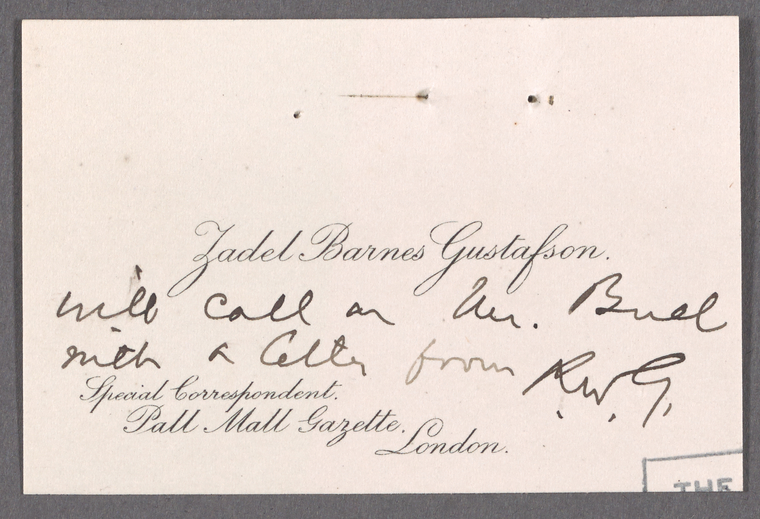 Zadel Barnes Gustafson.
will call on Mr. Buel
with a letter from R.W.G.
Special Correspondent.
Pall Mall Gazette.
London.
THE